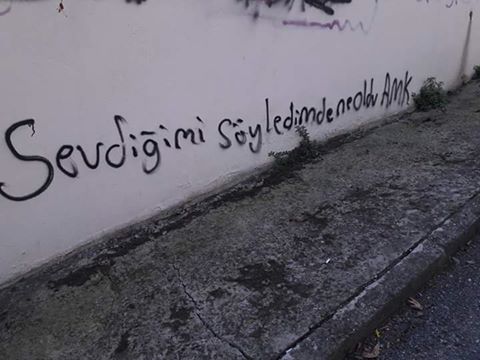 Sevdiğimi söyledimde ne oldu AMK